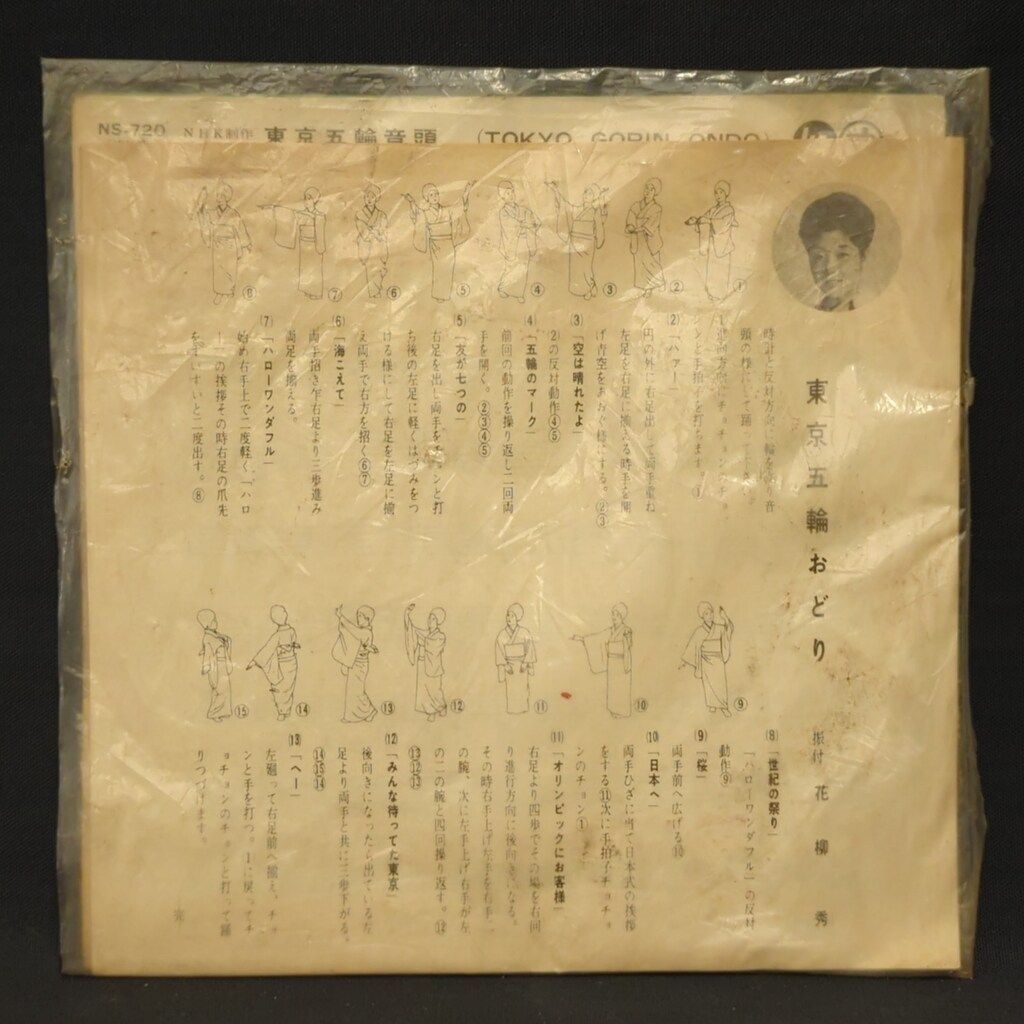 NS-720 NHK制作 東京五輪音頭 (TOKYO GORIN ONDO)
東京五輪おどり
振付 花柳秀
時計と反対方向に輪を
頭の様にして踊って下さい。
1 進向方向にチョチョンのチョ
ンと手拍子を打ちます。①
(2)「ハァー」
円の外に右足出して両手重ね
左足を右足に揃える時手を開
げ青空をあおぐ様にする。②③
(3)「空は晴れたよ」
2の反対動作④⑤
(4)「五輪のマーク」
前回の動作を操り返し二回両
手を開く。②③④⑤
(5)「友が七つの」
右足を出し両手をチョンと打
ち後の左足に軽くはづみをつ
ける様にして右足を左足に揃
え両手で右方を招く⑥⑦
(6)「海こえて」
両手招き乍右足より三歩進み
両足を揃える。
(7)「ハローワンダフル」
始め右手上で二度軽く、「ハロ
ー」の挨拶その時右足の爪先
をすいすいと二度出す。⑧
① ② ③ ④ ⑤ ⑥ ⑦ ⑧
(8)「世紀の祭り」
「ハローワンダフル」の反対
動作⑨
(9)「桜」
両手前へ広げる⑩
(10)「日本へ」
両手ひざに当て日本式の挨拶
をする⑪次に手拍子チョチョ
ンのチョン①
(11)「オリンピックにお客様」
右足より四歩でその場を右回
り進行方向に後向きになる。
その時右手上げ左手を右手
の腕、次に左手上げ右手が左
の二の腕と四回操り返す。⑫
⑬⑫⑬
(12)「みんな待ってた東京」
後向きになったら出ている左
足より両手と共に三歩下がる。
⑭⑮⑭
(13)「ヘー」
左廻って右足前へ揃え、チョ
ンと手を打つ。1に戻ってチ
ョチョンのチョンと打って踊
りつづけます。
完
⑨ ⑩ ⑪ ⑫ ⑬ ⑭ ⑮